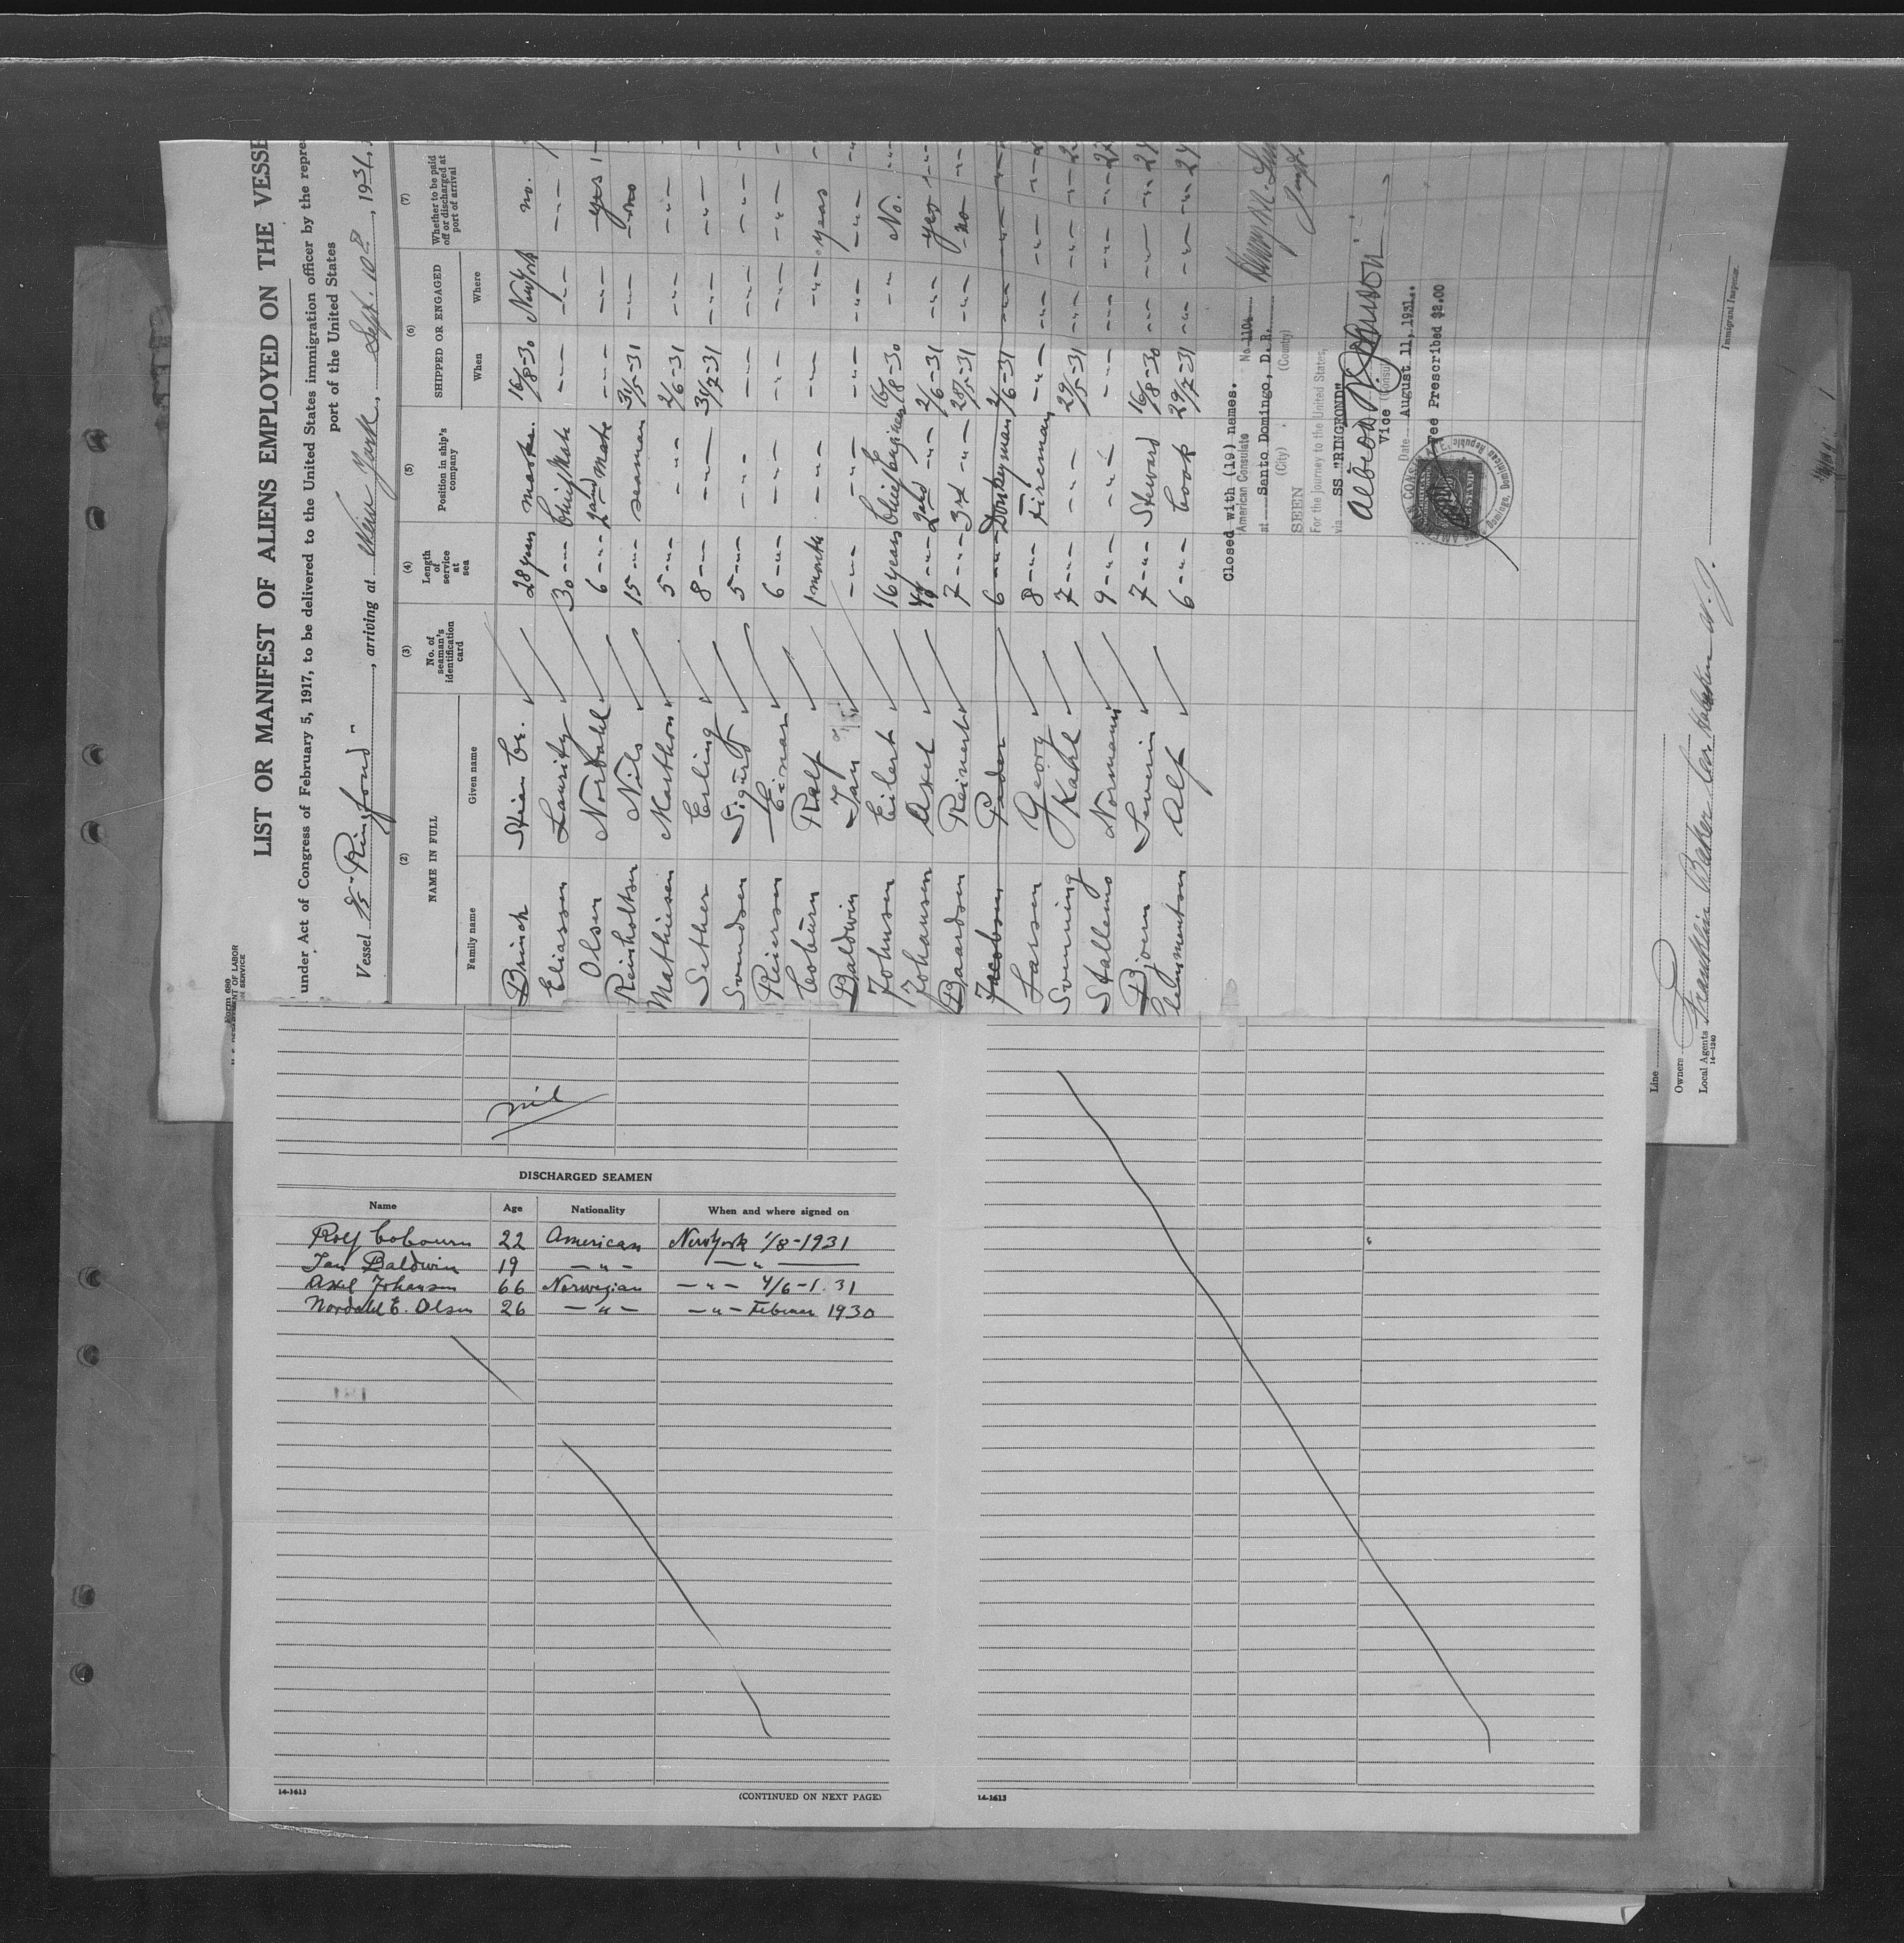 Form 680
LIST OR MANIFEST OF ALIENS EMPLOYED ON THE VESSE
under Act of Congress of February 5, 1917, to be delivered to the United States immigration officer by the repre
port of the United States
Vessel S/S "Ringfond", arriving at New York, Sept. 10th, 1931,
(2) (3) (4) (5) (6) (7)
NAME IN FULL No. of seaman's identification card Length of service at sea Position in ship's company SHIPPED OR ENGAGED Whether to be paid off or discharged at port of arrival
Family name Given name When Where
Brinch Stian Chr. 28 years master. 16/8-30 New York no.
Eliassen Lauritz 30 -"- Chief Mate -"- -"- -"-
Olsen Nordahl 6 -"- 2nd Mate -"- -"- yes
Reinholtsen Nils 15 -"- seaman 31/5-31 -"- no
Mathiesen Marthon 5 -"- -"- 2/6-31 -"- -"-
Sether Erling 8 -"- -"- 31/7-31 -"- -"-
Svendsen Sigurd 5 -"- -"- -"- -"- -"-
Reiersen Einar 6 -"- -"- -"- -"- -"-
Coburn Ralf 1 month -"- -"- -"- years
Baldwin Jan -"- -"- -"- -"- -"-
Johnsen Eilert 16 years Chief Engineer 16/8-30 -"- No.
Johansen Axel 40 -"- 2nd -"- 2/6-31 -"- yes
Baardsen Reinert 7 -"- 3d -"- 28/5-31 -"- no
Jacobsen Peder 6 -"- Donkeyman 2/6-31 -"- -"-
Larsen Georg 8 -"- Fireman -"- -"- -"-
Svenning Kahl 7 -"- -"- 29/5-31 -"- -"-
Stallemo Normann 9 -"- -"- -"- -"- -"- 22
Bjoern Severin 7 -"- Steward 16/8-30 -"- -"- 24
Clemmentsen Alf 6 -"- Cook 29/7-31 -"- -"- 24
Closed with (19) names.
American Consulate No. 1104
at Santo Domingo, D.R.
(City) (County)
SEEN
For the journey to the United States,
via SS "RINGFOND"
Vice Consul
Date August 11, 1931.
Fee Prescribed $2.00
Immigrant Inspector.
Line
Owners
Local Agents Franklin Baker
14-1240
nil
DISCHARGED SEAMEN
Name Age Nationality When and where signed on
Rolf Cobourn 22 American New York 1/8-1931
Jan Baldwin 19 -"- -"-
Axel Johansen 66 Norwegian -"- 4/6-1.31
Nordahl E. Olsen 26 -"- -"- Februar 1930
14-1613
(CONTINUED ON NEXT PAGE)
14-1613